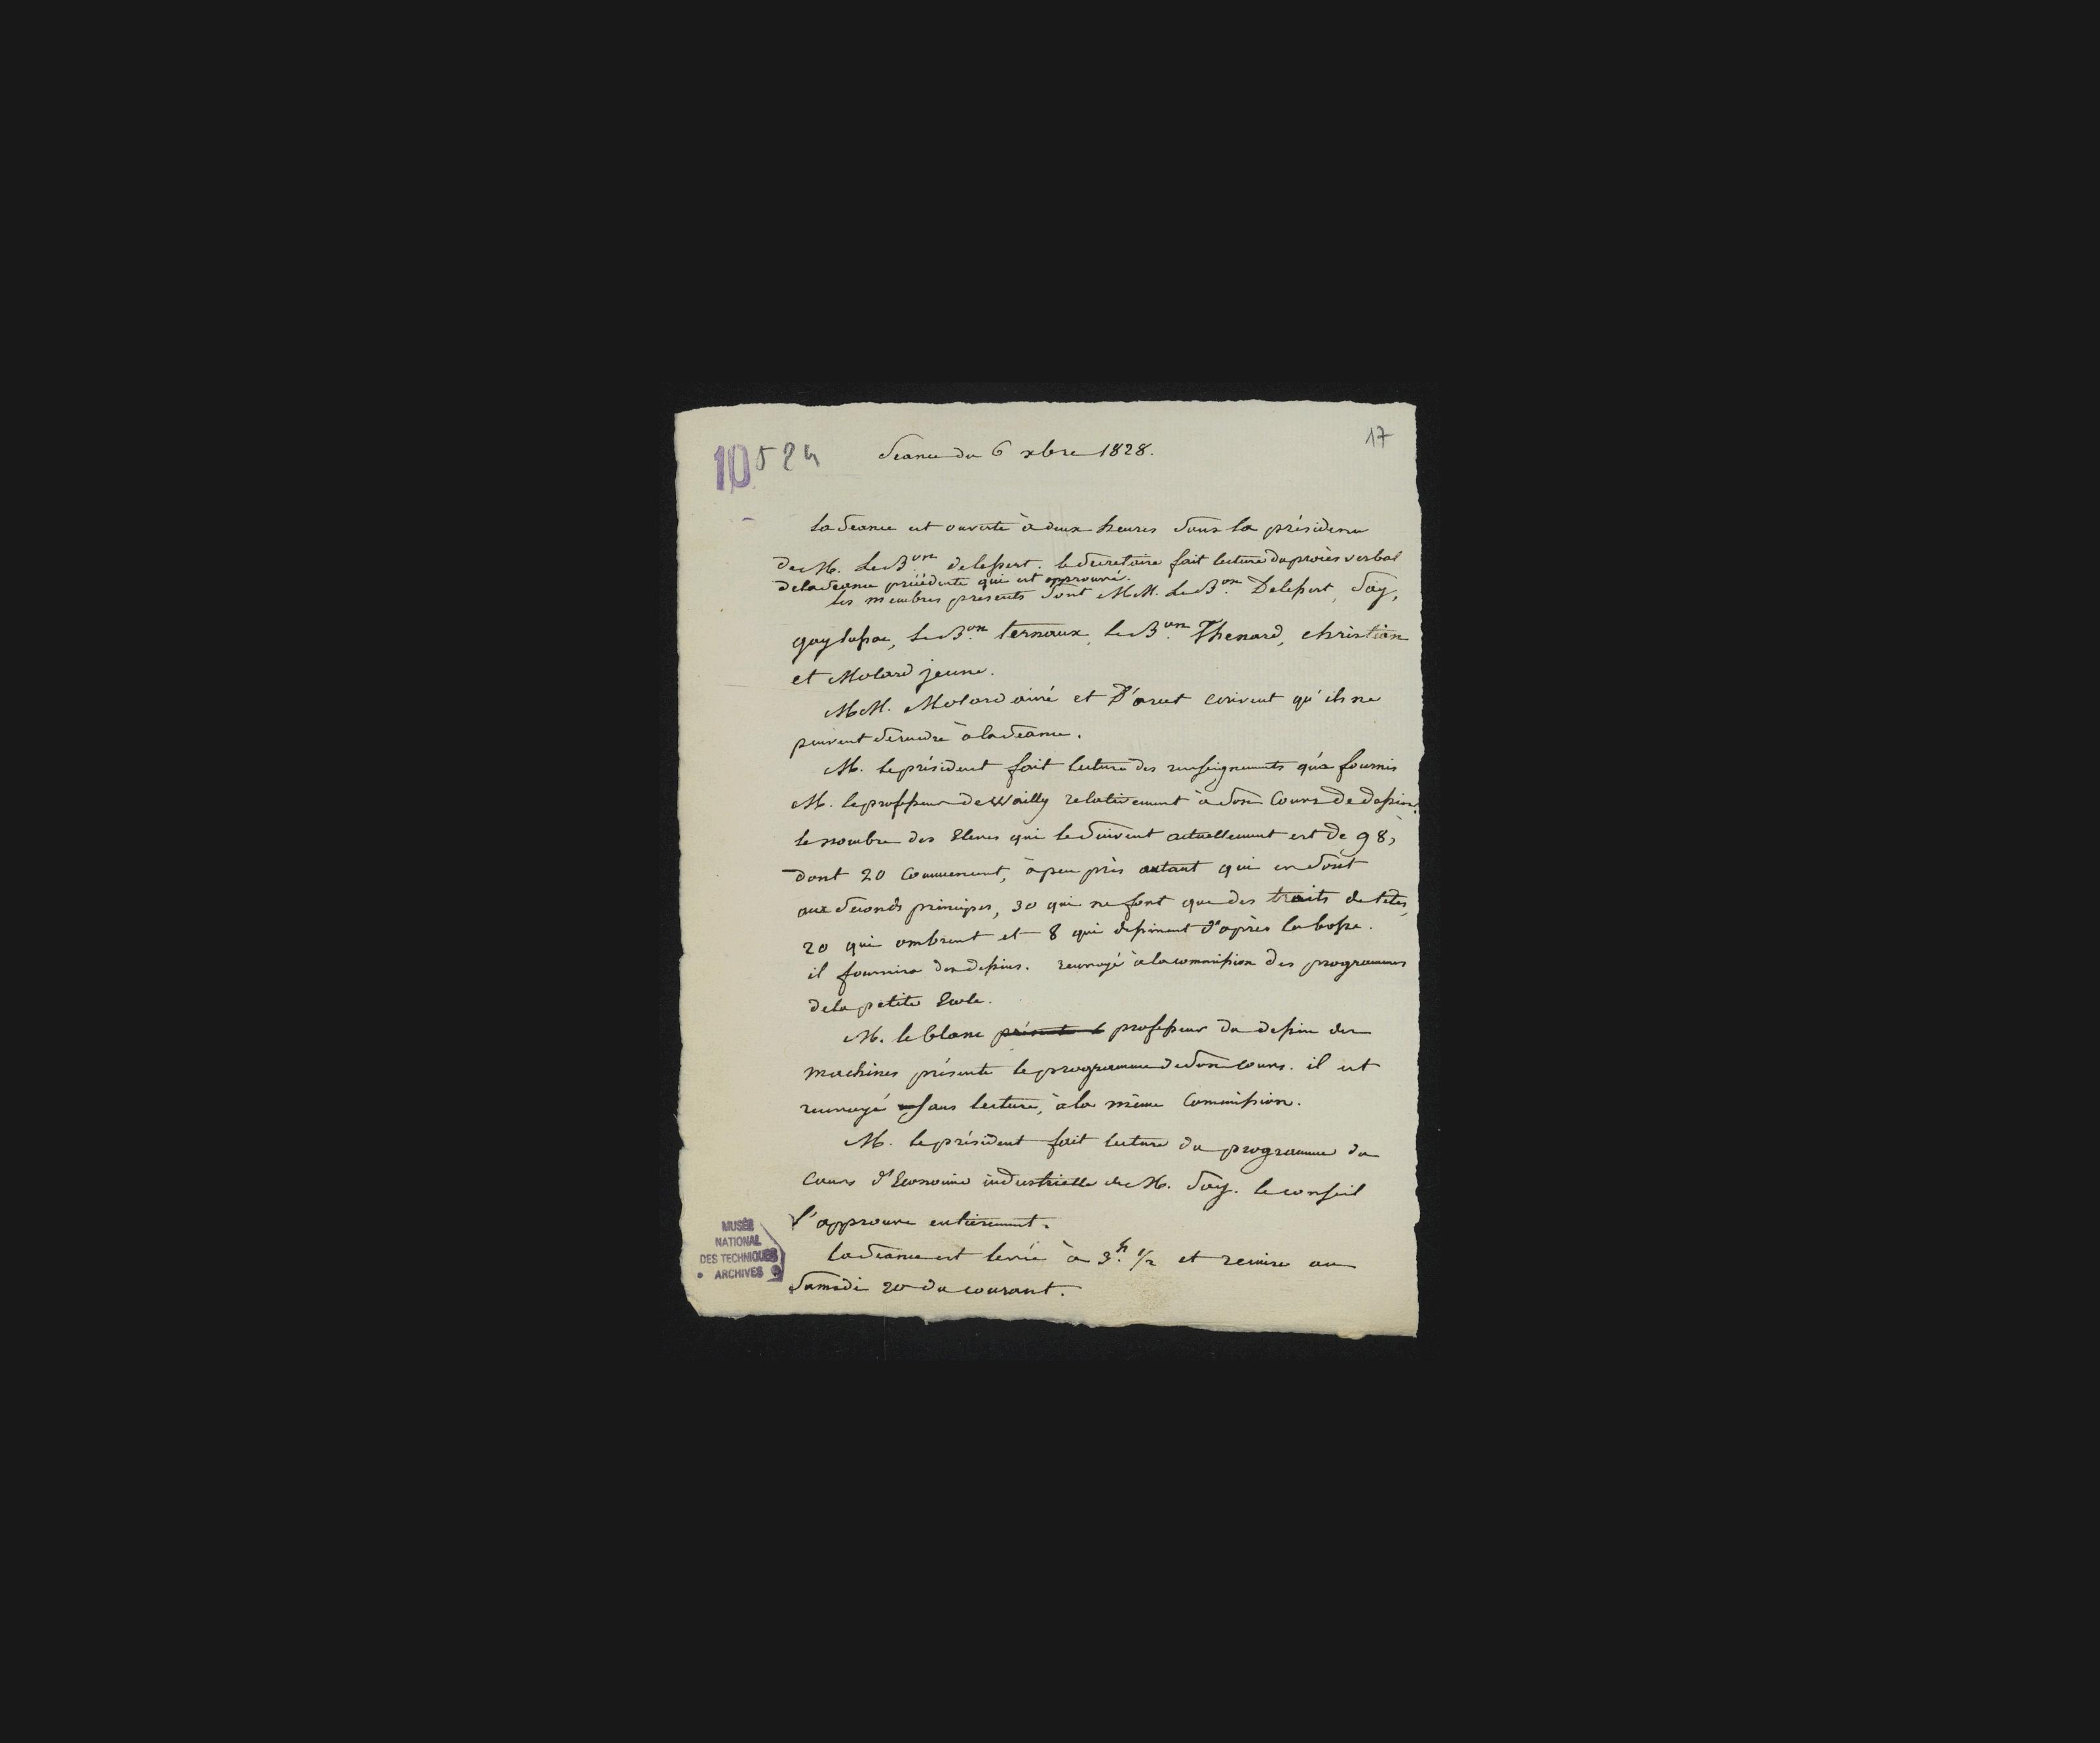 17
10 524
Seance du 6 xbre 1828.
la seance est ouverte à deux heures sous la présidence
de M. Le Bon. delessert. le secretaire fait lecture du procès verbal
de la seance précédente qui est approuvé.
les membres presents sont MM. Le Bon. Delessert, Say,
gay lussac, Le Bon. ternaux, le Bon. Thenard, christian
et Molard jeune.
MM. Molard ainé et D'arcet ecrivent qu'ils ne
peuvent se rendre à la seance.
M. le président fait lecture des renseignements qu'a fournis
M. le professeur de Wailly relativement à son Cours de dessin.
le nombre des Eleves qui le suivent actuellement est de 98,
dont 20 Commencent, à peu près autant qui en sont
aux seconds principes, 30 qui ne font que des traits de tetes,
20 qui ombrent et 8 qui dessinent d'après la bosse.
il fournira des dessins. renvoyé à la commission des programmes
de la petite Ecole.
M. le blanc présente le professeur du dessin des
machines présente le programme de son cours. il est
renvoyé sans lecture, à la même Commission.
M. le président fait lecture du programme du
Cours d'Economie industrielle de M. Say. le conseil
l'approuve entierement.
la seance est levée à 3h. 1/2 et remise au
Samedi 20 du courant.
MUSÉE
NATIONAL
DES TECHNIQUES
• ARCHIVES